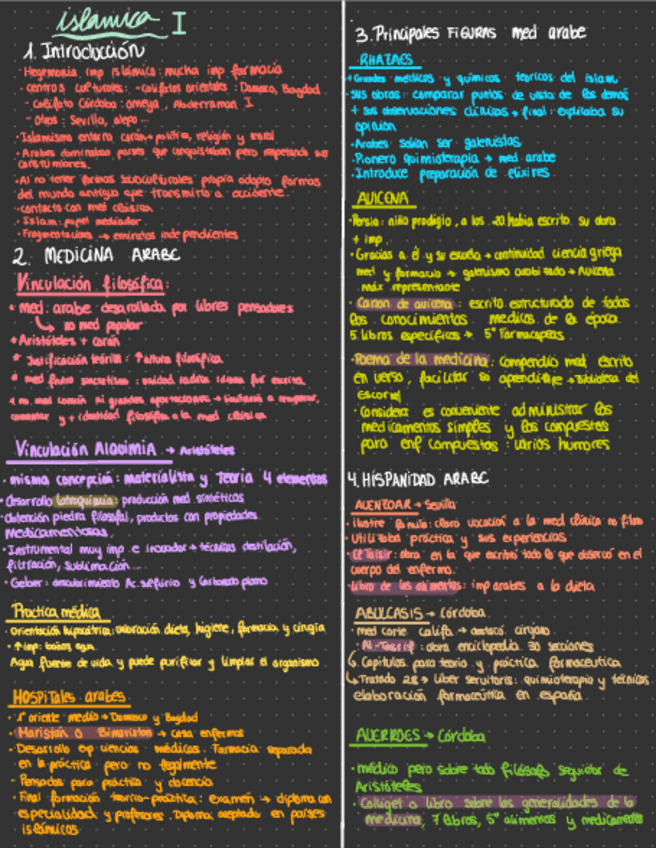 islamica I
1. Introducción
· Hegemonia imp islámica: mucha imp farmacia
· centros culturales: · califatos orientales: Damasco, Bagdad
· Califato Córdoba: omeya, Abderraman I
· Otros: Sevilla, alepo...
· Islamismo entorno corán → política, religión y moral
· Arabes dominaban paises que conquistaban pero respetando sus
costumbres.
· Al no tener formas socioculturales propia adopta formas
del mundo antiguo que transmitió a occidente.
· contacto con med clásica
· Islam: papel mediador
· Fragmentaciones → emiratos independientes
2. MEDICINA ARABE
Vinculación filosófica:
* med. arabe desarollada por libres pensadores
↳ no med popular
* Aristóteles + corán
* Justificación teórica: ↑altura filosófica
* med fruto sincretismo: unidad idioma escrita
* no med común ni grandes aportaciones →
comentar y + identidad filosófica a la med clásica
Vinculación Alquimia → Aristóteles
· misma concepción: materialista y Teoria 4 elementos
· desarrollo Iatroquimia: producción med sintéticos
· obtención piedra filosofal, productos con propiedades
medicamentosas.
· Instrumental muy imp e inovador → técnicas destilación,
filtración, sublimación...
· Geber: descubrimiento Ac. sulfurio y Carbonato plomo
Practica médica
· Orientación hipocrática: valoración dieta, higiene, farmacia y cirugia
· ↑imp: baños agua
Agua fuente de vida y puede purificar y limpiar el organismo
HOSPITales arabes
· 1º oriente medio → Damasco y Bagdad
· Maristán o Bimaristan → casa enfermos
· Desarollo esp ciencias médicas. Farmacia separada
en la práctica pero no legalmente
· Pensados para práctica y docencia
· Final formación teorico-práctica: examen → diploma con
especialidad y profesores. Diploma aceptado en paises
islámicos
3. Principales FIGURAS med arabe
RHAZAES
· Grandes médicos y químicos teoricos del islam
· sus obras: comparar puntos de vista de los demás
+ sus observaciones clínicas → final: explicaba su
opinión
· Arabes solian ser galenistas
· Pionero quimioterapia → med arabe
· Introduce preparación de elixires
AVICENA
· Persia: niño prodigio, a los 20 habia escrito su obra
+ imp.
· Gracias a él y su escuela → continuidad ciencia griega
med y farmacia → galenismo arabizado → Avicena
max representante
· Canon de avicena: escrito estructurado de todos
los conocimientos medicos de la época
5 libros especificos → 5º Farmacopeas
· Poema de la medicina: compendio med escrito
en verso, facilitar su aprendizaje → Biblioteca del
escorial
· Considera es conveniente administrar los
medicamentos simples y los compuestos
para enf compuestas: varios humores
4. HISPANIDAD ARABE
AVENZOAR → Sevilla
· ilustre familia: clara vocación a la med clínica no filoso
· Utilizaba práctica y sus experiencias
· El Taisir: obra en la que escribió todo lo que observó en el
cuerpo del enfermo.
· Libro de los alimentos: imp arabes a la dieta
ABULCASIS → Córdoba
· med corte califa → destacó cirujano
· Al-Tasrif: obra enciclopedia 30 secciones
↳ Capitulos para teoria y práctica farmaceutica
↳ Tratado 28 → Liber servitoris: quimioterapia y técnicas
elaboración farmaceútica en españa
AVERROES → Córdoba
· médico pero sobre todo filósofo seguidor de
Aristóteles
· Colliget o libro sobre las generalidades de la
medicina, 7 libros, 5º alimentos y medicamento